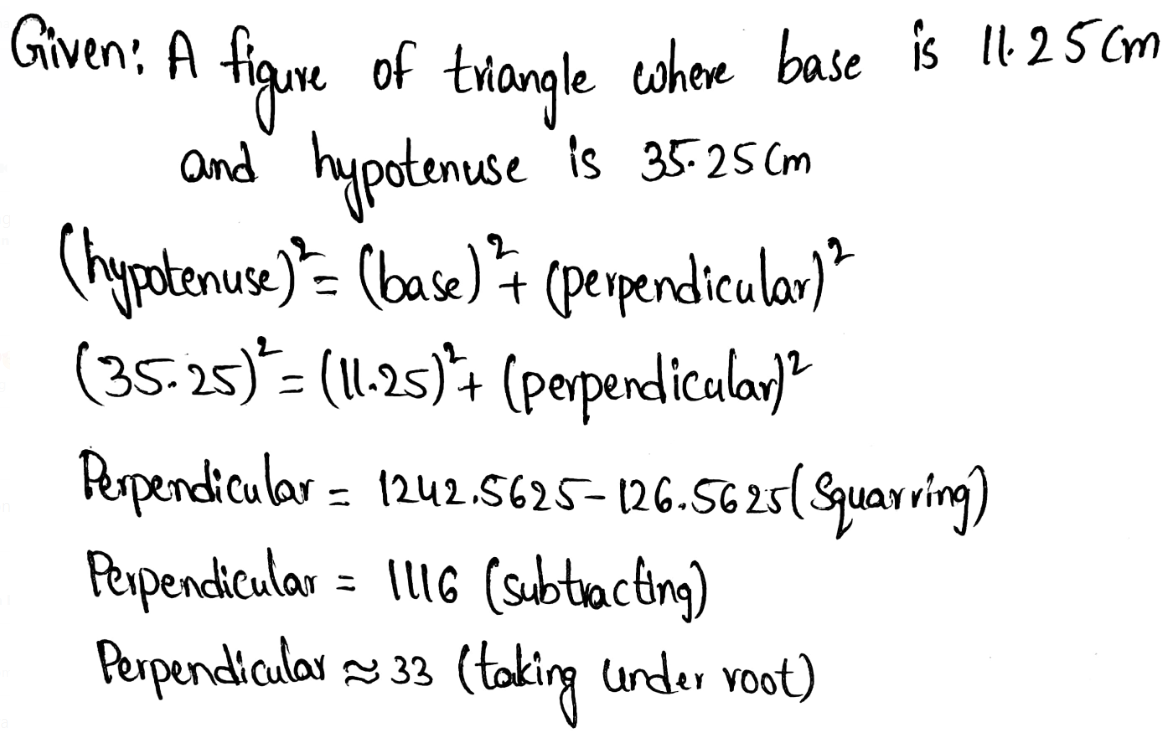 Given: A figure of triangle where base is 11.25 cm
and hypotenuse is 35.25 cm
(hypotenuse)² = (base)² + (perpendicular)²
(35.25)² = (11.25)² + (perpendicular)²
Perpendicular = 1242.5625 - 126.5625 (Squarring)
Perpendicular = 1116 (subtracting)
Perpendicular ≈ 33 (taking under root)